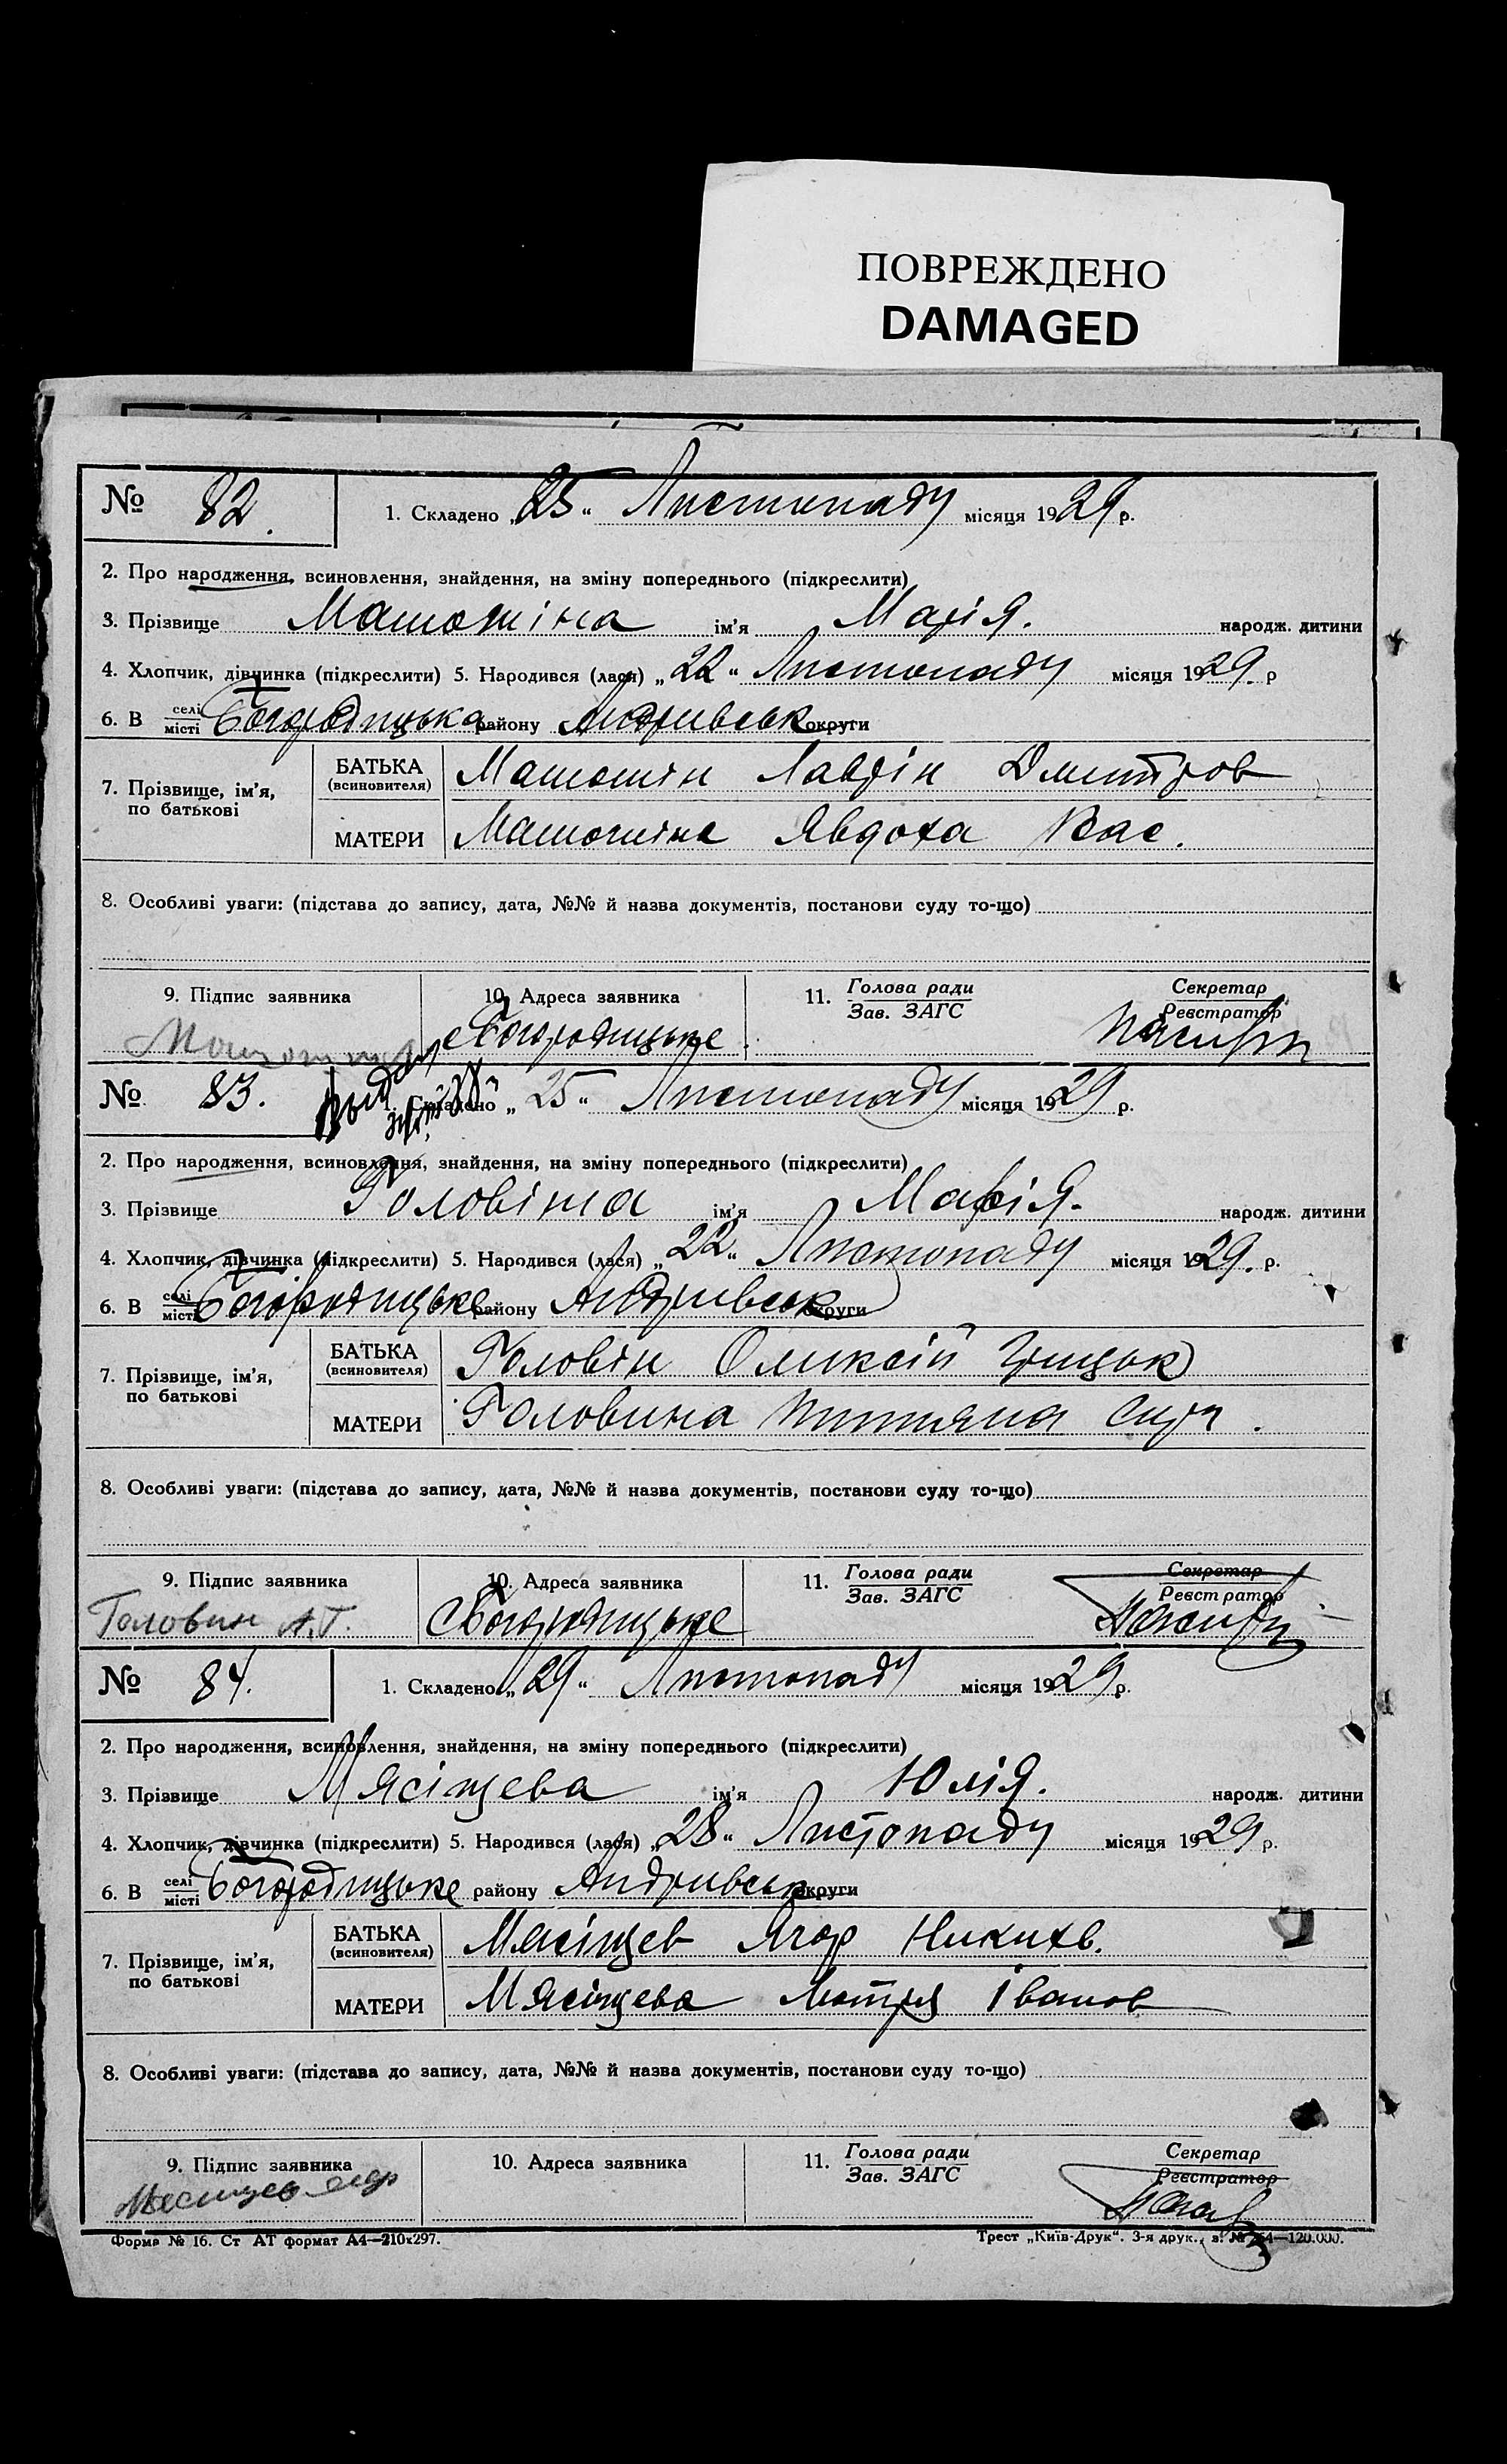 ПОВРЕЖДЕНО
DAMAGED
№ 82. 1. Складено „25“ Листопаду місяця 1929 р.
2. Про народження, всиновлення, знайдення, на зміну попереднього (підкреслити)
3. Прізвище Матюшіна ім'я Марія. народж. дитини
4. Хлопчик, дівчинка (підкреслити) 5. Народився (лася) „22“ Листопаду місяця 1929. р
6. В селі місті Богородицька району Андривськ округи
7. Прізвище, ім'я, по батькові
БАТЬКА (всиновителя) Матюшін Лаврін Дмитров
МАТЕРИ Матюшіна Явдоха Вас.
8. Особливі уваги: (підстава до запису, дата, №№ й назва документів, постанови суду то-що)
9. Підпис заявника 10. Адреса заявника 11. Голова ради Зав. ЗАГС Секретар Реєстратор
с Богородицьке.
№ 83. 1. Складено „25“ Листопаду місяця 1929 р.
2. Про народження, всиновлення, знайдення, на зміну попереднього (підкреслити)
3. Прізвище Головіна ім'я Марія. народж. дитини
4. Хлопчик, дівчинка (підкреслити) 5. Народився (лася) „22“ Листопаду місяця 1929. р.
6. В селі місті Богородицьке району Андривськ округи
7. Прізвище, ім'я, по батькові
БАТЬКА (всиновителя) Головін Оликсій Грицьк
МАТЕРИ Головина
8. Особливі уваги: (підстава до запису, дата, №№ й назва документів, постанови суду то-що)
9. Підпис заявника 10. Адреса заявника 11. Голова ради Зав. ЗАГС Секретар Реєстратор
Головин А.Г. с Богородицьке
№ 84. 1. Складено „29“ Листопаду місяця 1929 р.
2. Про народження, всиновлення, знайдення, на зміну попереднього (підкреслити)
3. Прізвище Мясіщева ім'я Юлія. народж. дитини
4. Хлопчик, дівчинка (підкреслити) 5. Народився (лася) „28“ Листопаду місяця 1929 р.
6. В селі місті Богородицьке району Андривськ округи
7. Прізвище, ім'я, по батькові
БАТЬКА (всиновителя) Мясіщев Ягор
МАТЕРИ Мясіщева Мотря Іванов
8. Особливі уваги: (підстава до запису, дата, №№ й назва документів, постанови суду то-що)
9. Підпис заявника 10. Адреса заявника 11. Голова ради Зав. ЗАГС Секретар Реєстратор
Форма № 16. Ст АТ формат А4—210х297. Трест „Київ-Друк“. 3-я друк., 120.000.